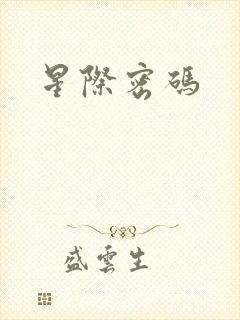 星際密碼
盛雲生